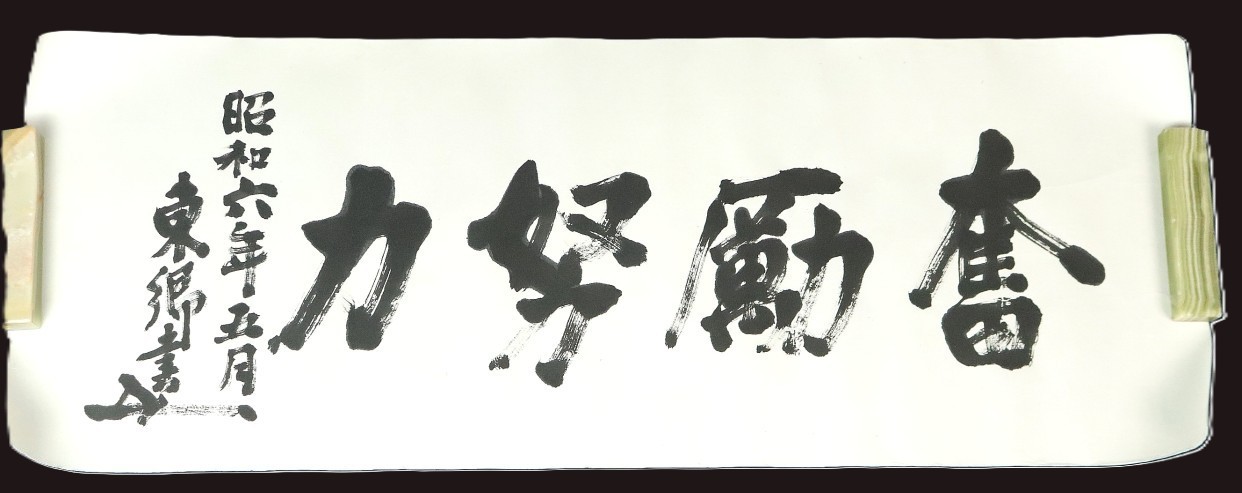 奮勵努力
昭和六年五月
東郷書